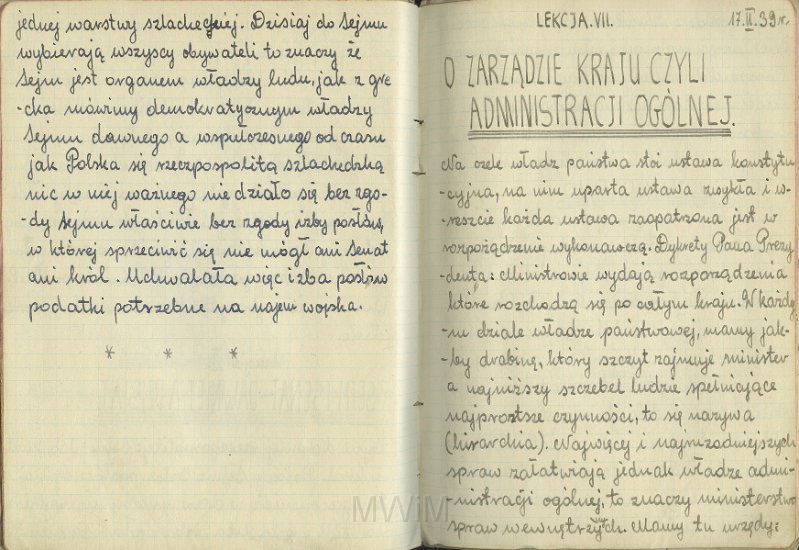 jednej warstwy szlacheckiej. Dzisiaj do Sejmu
wybierają wszyscy obywateli to znaczy że
Sejm jest organem władzy ludu, jak z gre
-cka mówimy demokratycznym władzy
Sejmu dawnego a wspułczesnego od czasu
jak Polska się rzeczpospolitą szlachedzką
nic w niej ważnego nie działo się bez zgo-
-dy Sejmu właściwie bez zgody izby posłów,
w której sprzeciwić się nie mógł ani Senat
ani król. Uchwalała więc izba posłów
podatki potrzebne na najem wojska.
* * *
LEKCJA.VII. 17.II.39r.
O ZARZĄDZIE KRAJU CZYLI
ADMINISTRACJI OGÓLNEJ.
Na czele władz państwa stoi ustawa konstytu
-cyjna, na nim uparta ustawa zwykła i w-
-reszcie każda ustawa zaopatrzona jest w
rozpożądzenie wykonawczą. Dykrety Pana Prezy
-denta: Ministrowie wydają rozporządzenia
które rozchodzą się po całym kraju. W każdy
-m dziale władze państwowej, mamy jak-
-by drabinę, który szczyt zajmuje minister
a najniższy szczebel ludzie spełniające
najprostsze czynności, to się nazywa
(hirarchia). Najwięcej i najrozmajszych
spraw załatwiają jednak władze admi-
-nistracji ogólnej, to znaczy ministerstwo
spraw wewnętrznych. Mamy tu urzędy:
MWiM